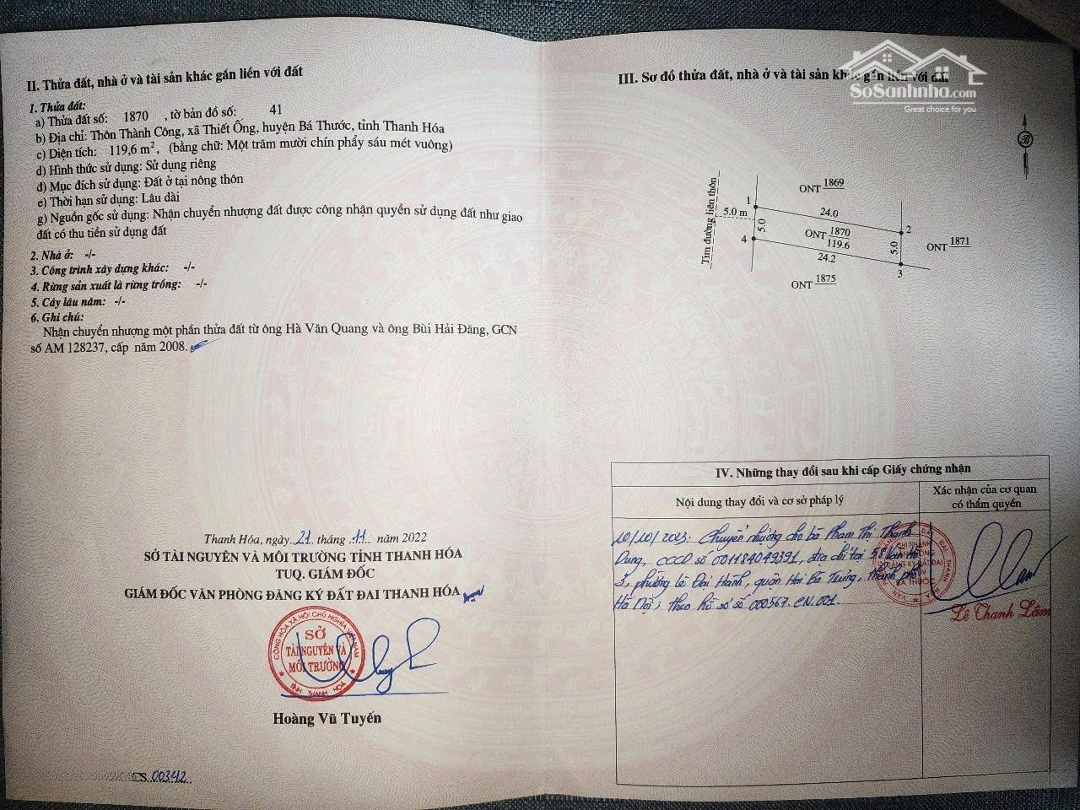 II. Thửa đất, nhà ở và tài sản khác gắn liền với đất
1. Thửa đất:
a) Thửa đất số: 1870 , tờ bản đồ số: 41
b) Địa chỉ: Thôn Thành Công, xã Thiết Ống, huyện Bá Thước, tỉnh Thanh Hóa
c) Diện tích: 119,6 m², (bằng chữ: Một trăm mười chín phẩy sáu mét vuông)
d) Hình thức sử dụng: Sử dụng riêng
đ) Mục đích sử dụng: Đất ở tại nông thôn
e) Thời hạn sử dụng: Lâu dài
g) Nguồn gốc sử dụng: Nhận chuyển nhượng đất được công nhận quyền sử dụng đất như giao
đất có thu tiền sử dụng đất
2. Nhà ở: -/-
3. Công trình xây dựng khác: -/-
4. Rừng sản xuất là rừng trồng: -/-
5. Cây lâu năm: -/-
6. Ghi chú:
Nhận chuyển nhượng một phần thửa đất từ ông Hà Văn Quang và ông Bùi Hải Đăng, GCN
số AM 128237, cấp năm 2008.
Thanh Hóa, ngày 21 tháng 11 năm 2022
SỞ TÀI NGUYÊN VÀ MÔI TRƯỜNG TỈNH THANH HÓA
TUQ. GIÁM ĐỐC
GIÁM ĐỐC VĂN PHÒNG ĐĂNG KÝ ĐẤT ĐAI THANH HÓA
CỘNG HÒA XÃ HỘI CHỦ NGHĨA VIỆT NAM
SỞ
TÀI NGUYÊN VÀ
MÔI TRƯỜNG
TỈNH THANH HÓA
Hoàng Vũ Tuyến
CS 00342
III. Sơ đồ thửa đất, nhà ở và tài sản khác gắn liền với đất
SoSanhnha.com
Great choice for you
B
Tim đường liên thôn
5.0 m
ONT 1869
1
24.0
2
5.0
ONT 1870
119.6
5.0
ONT 1871
4
24.2
3
ONT 1875
IV. Những thay đổi sau khi cấp Giấy chứng nhận
Nội dung thay đổi và cơ sở pháp lý
Xác nhận của cơ quan
có thẩm quyền
10/10/2023: Chuyển nhượng cho bà Phạm Thị Thanh
Dung, CCCD số 001184049391, địa chỉ tại 58 Vân Hồ
3, phường Lê Đại Hành, quận Hai Bà Trưng, thành phố
Hà Nội; theo hồ sơ số 000567.CN.001.
Lê Thanh Lâm